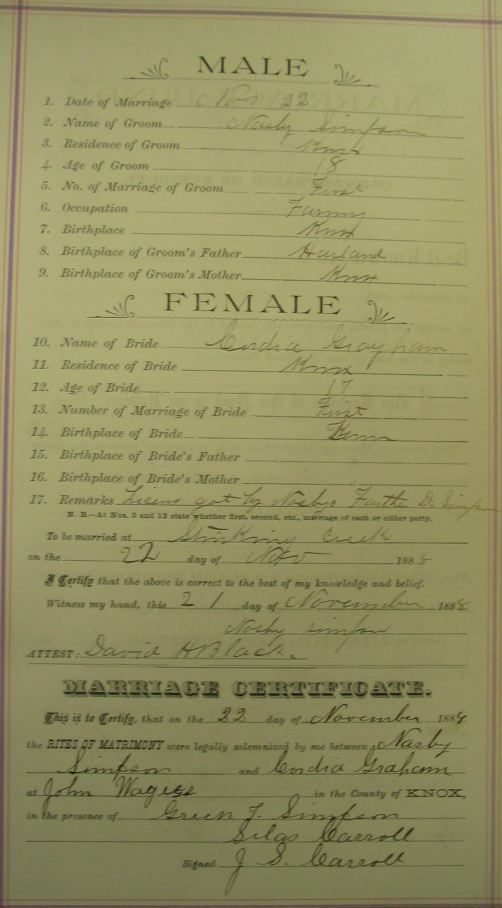 MALE
1. Date of Marriage Nov 22
2. Name of Groom Nasby Simpson
3. Residence of Groom Knox
4. Age of Groom 18
5. No. of Marriage of Groom First
6. Occupation Farming
7. Birthplace Knox
8. Birthplace of Groom's Father Harland
9. Birthplace of Groom's Mother Knox
FEMALE
10. Name of Bride Cordia Grayham
11. Residence of Bride Knox
12. Age of Bride 17
13. Number of Marriage of Bride First
14. Birthplace of Bride
15. Birthplace of Bride's Father
16. Birthplace of Bride's Mother
17. Remarks Licens got by Nasbys Farthe D. Simpson
N. B.—At Nos. 5 and 13 state whether first, second, etc., marriage of each or either party.
To be married at Stinking Creek
on the 22 day of Nov 188
I Certify that the above is correct to the best of my knowledge and belief.
Witness my hand, this 21 day of November 188
Nasby Simpson
ATTEST: David H Black
MARRIAGE CERTIFICATE.
This is to Certify, that on the 22 day of November 188
the RITES OF MATRIMONY were legally solemnized by me between Nasby
Simpson and Cordia Graham
at John Wagers in the County of KNOX,
in the presence of Green J. Simpson
Silas Carroll
Signed J. S. Carroll